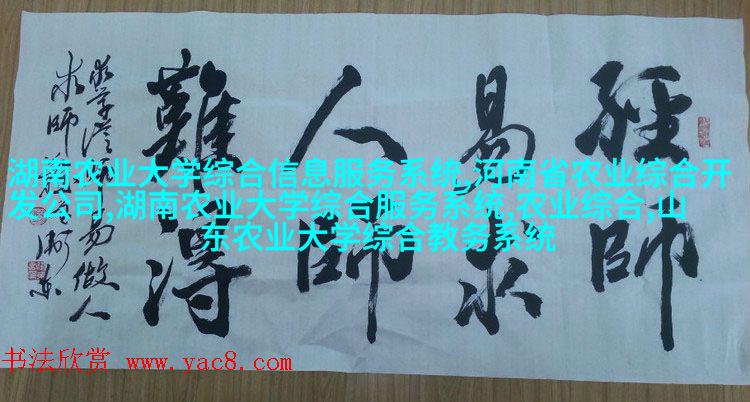 經師
易求
人師
難得
求師
做人
湖南农业大学综合信息服务系统,河南省农业综合开
发公司,湖南农业大学综合服务系统,农业综合,山
东农业大学综合教务系统
书法欣赏 www.yac8.com